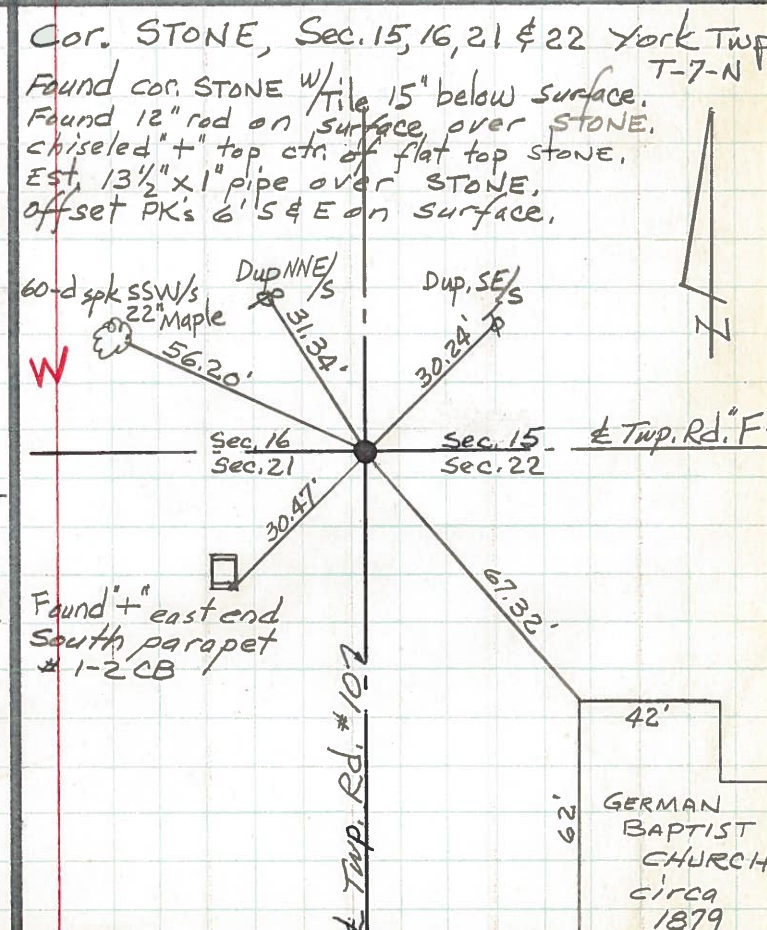 Cor. STONE, Sec. 15, 16, 21 & 22 York Twp
T-7-N
Found cor. STONE w/Tile 15" below surface.
Found 12" rod on surface over STONE.
chiseled "+" top ctr. of flat top STONE.
Est. 13½" x 1" pipe over STONE.
offset PK's 6' S & E on surface.
60-d spk SSW/s
22" Maple
Dup NNE/S
Dup. SE/S
56.20'
31.34'
30.24'
N
W
Sec. 16
Sec. 21
Sec. 15
Sec. 22
℄ Twp. Rd. "F
30.47'
67.32'
Found "+" east end
South parapet
# 1-2 CB
℄ Twp. Rd. # 107
42'
62'
GERMAN
BAPTIST
CHURCH
circa
1879